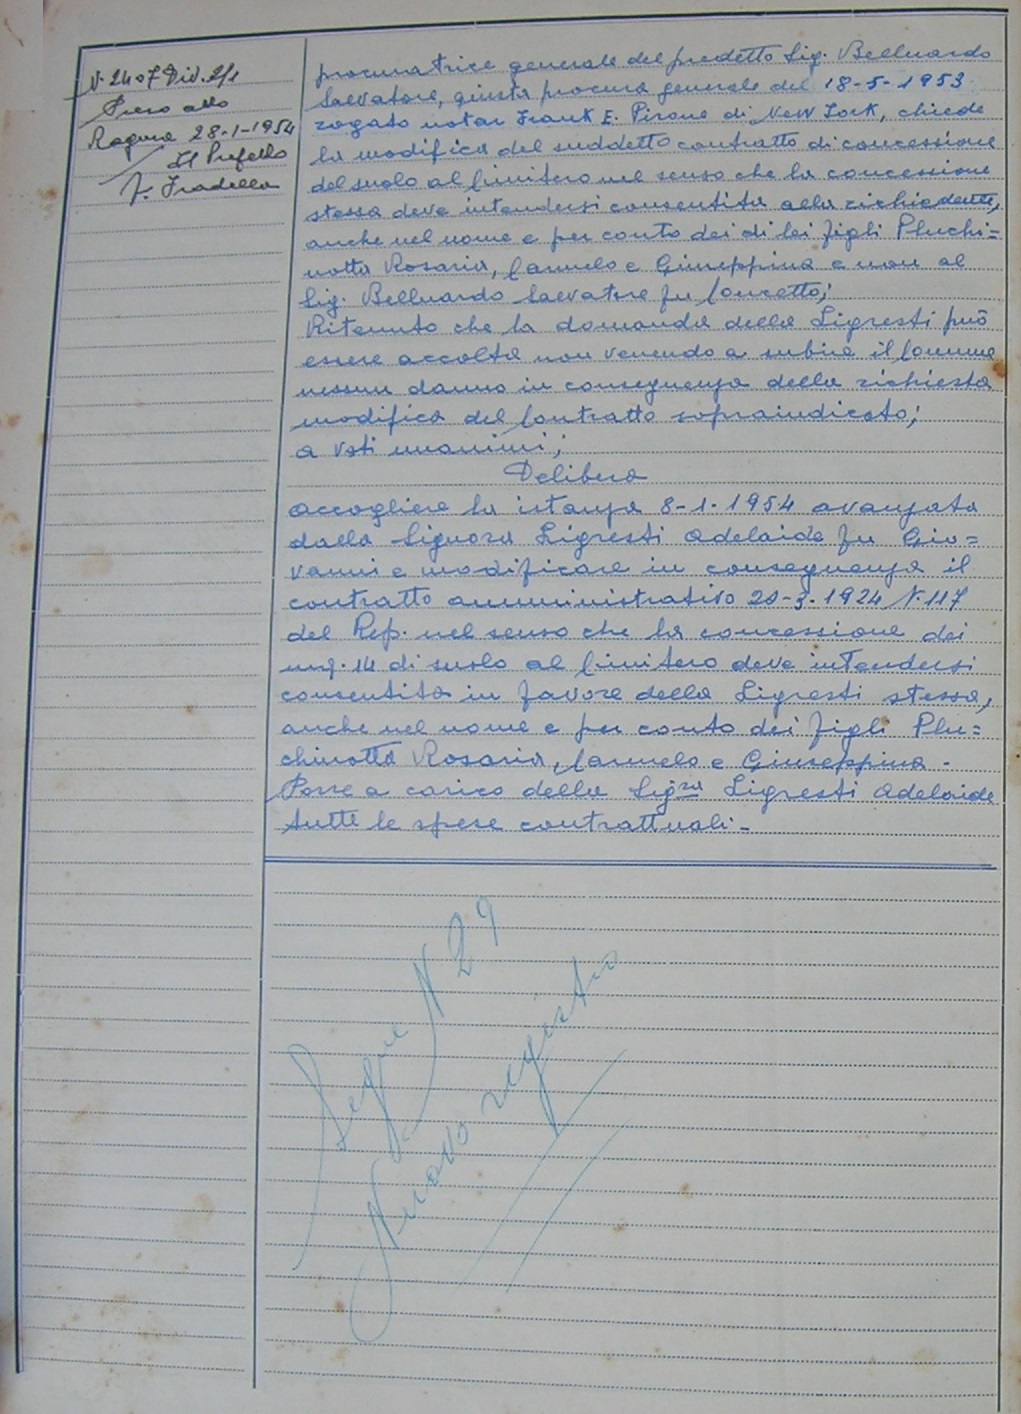 N. 2407 Div. 2/1
Preso atto
Ragusa 28-1-1954
Il Prefetto
F. Fradella
procuratrice generale del predetto Sig. Belluardo
Salvatore, giusta procura generale del 18-5-1953
rogato notar Frank E. Pirone di New York, chiede
la modifica del suddetto contratto di concessione
del suolo al Cimitero nel senso che la concessione
stessa deve intendersi consentita alla richiedente,
anche nel nome e per conto dei di lei figli Pluchi=
notta Rosaria, Carmelo e Giuseppina e non al
Sig. Belluardo Salvatore fu Concetto;
Ritenuto che la domanda della Ligresti può
essere accolta non venendo a subire il Comune
nessun danno in conseguenza della richiesta
modifica del Contratto sopraindicato;
a voti unanimi;
Delibera
accogliere la istanza 8-1-1954 avanzata
dalla Signora Ligresti Adelaide fu Gio=
vanni e modificare in conseguenza il
contratto amministrativo 20-3-1924 N. 117
del Rep. nel senso che la concessione dei
mq. 14 di suolo al Cimitero deve intendersi
consentita in favore della Ligresti stessa,
anche nel nome e per conto dei figli Plu=
chinotta Rosaria, Carmelo e Giuseppina -
Porre a carico della Sigra Ligresti Adelaide
tutte le spese contrattuali -
Segue N 29
Nuovo registro